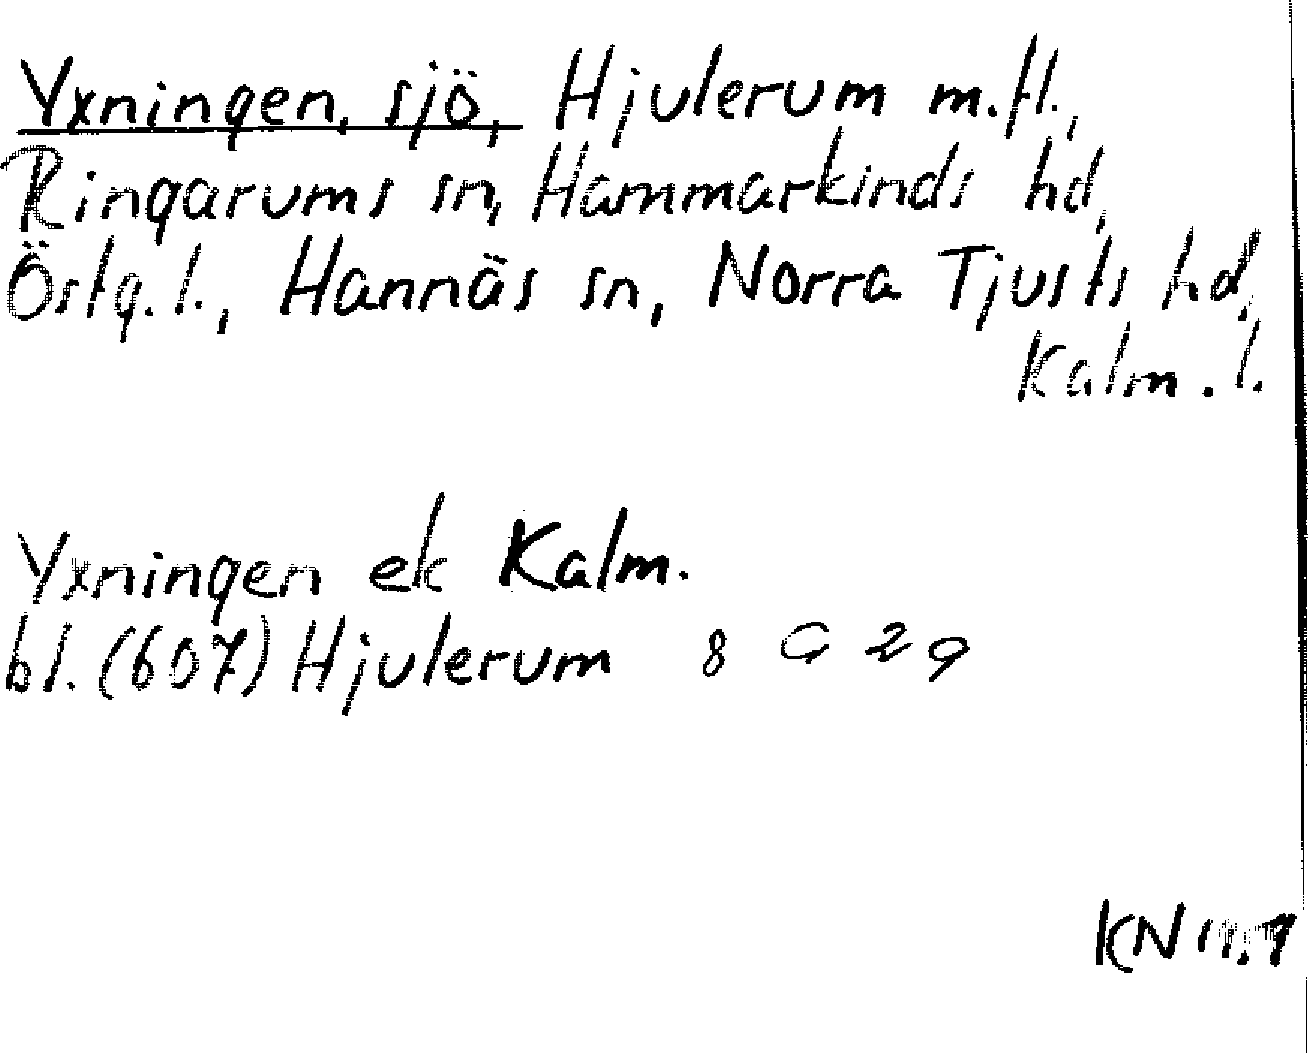 Yxningen, sjö, Hjulerum m.fl.,
Ringarums sn, Hammarkinds hd,
Östg.l., Hannäs sn, Norra Tjusts hd,
Kalm.l.
Yxningen ek Kalm.
bl. (607) Hjulerum 8 G 2 a
KN